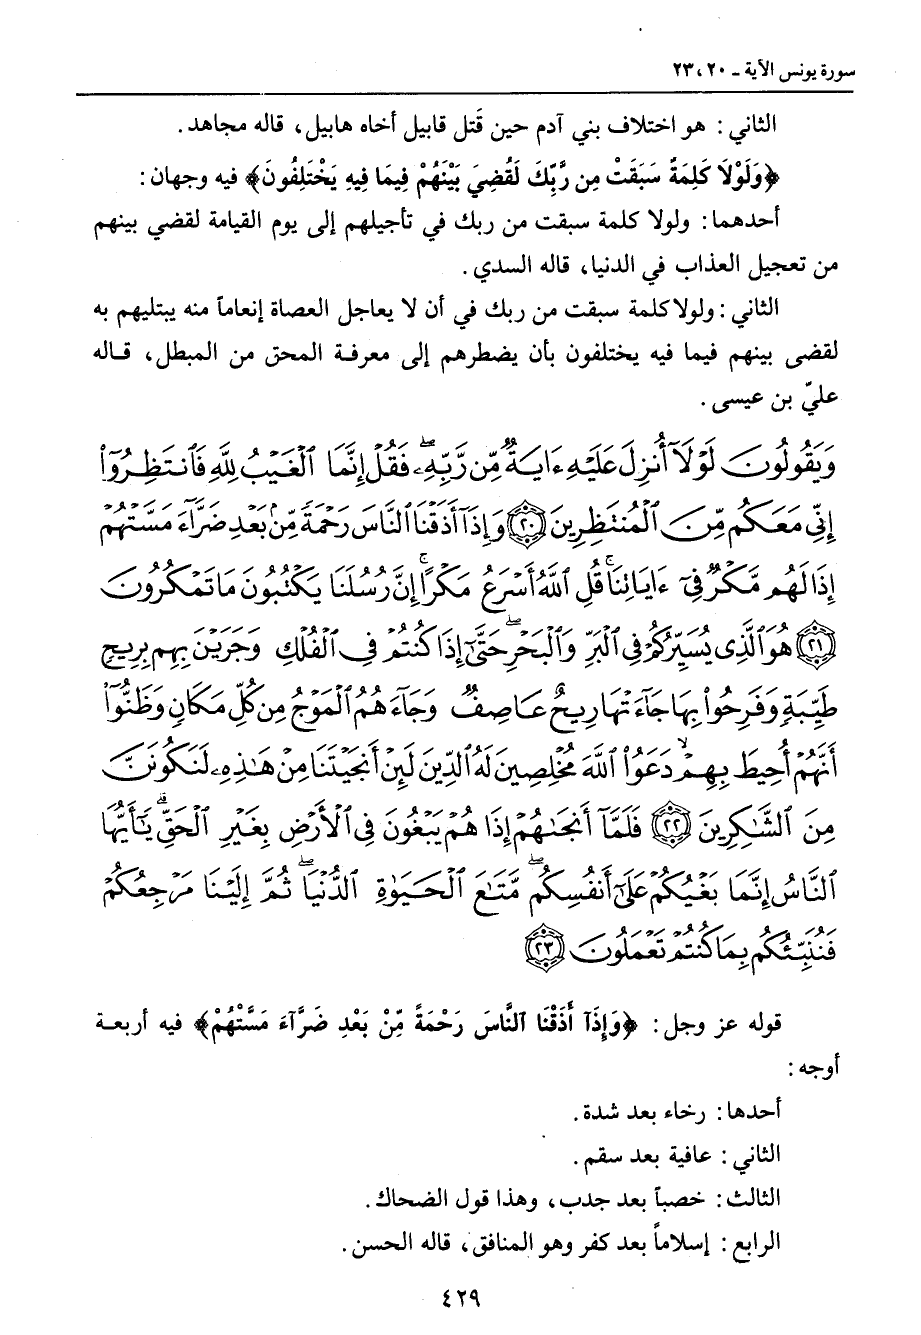 سورة يونس الآية ـ ٢٠، ٢٣
الثاني: هو اختلاف بني آدم حين قَتل قابيل أخاه هابيل، قاله مجاهد.
﴿وَلَوْلَا كَلِمَةٌ سَبَقَتْ مِن رَّبِّكَ لَقُضِيَ بَيْنَهُمْ فِيمَا فِيهِ يَخْتَلِفُونَ﴾ فيه وجهان:
أحدهما: ولولا كلمة سبقت من ربك في تأجيلهم إلى يوم القيامة لقضي بينهم
من تعجيل العذاب في الدنيا، قاله السدي.
الثاني: ولولا كلمة سبقت من ربك في أن لا يعاجل العصاة إنعاماً منه يبتليهم به
لقضى بينهم فيما فيه يختلفون بأن يضطرهم إلى معرفة المحق من المبطل، قاله
عليّ بن عيسى.
وَيَقُولُونَ لَوْلَآ أُنزِلَ عَلَيْهِ ءَايَةٌ مِّن رَّبِّهِۦ ۖ فَقُلْ إِنَّمَا ٱلْغَيْبُ لِلَّهِ فَٱنتَظِرُوٓا۟
إِنِّى مَعَكُم مِّنَ ٱلْمُنتَظِرِينَ ﴿٢٠﴾ وَإِذَآ أَذَقْنَا ٱلنَّاسَ رَحْمَةً مِّنۢ بَعْدِ ضَرَّآءَ مَسَّتْهُمْ
إِذَا لَهُم مَّكْرٌ فِىٓ ءَايَاتِنَا ۚ قُلِ ٱللَّهُ أَسْرَعُ مَكْرًا ۚ إِنَّ رُسُلَنَا يَكْتُبُونَ مَا تَمْكُرُونَ
﴿٢١﴾ هُوَ ٱلَّذِى يُسَيِّرُكُمْ فِى ٱلْبَرِّ وَٱلْبَحْرِ ۖ حَتَّىٰٓ إِذَا كُنتُمْ فِى ٱلْفُلْكِ وَجَرَيْنَ بِهِم بِرِيحٍ
طَيِّبَةٍ وَفَرِحُوا۟ بِهَا جَآءَتْهَا رِيحٌ عَاصِفٌ وَجَآءَهُمُ ٱلْمَوْجُ مِن كُلِّ مَكَانٍ وَظَنُّوٓا۟
أَنَّهُمْ أُحِيطَ بِهِمْ ۙ دَعَوُا۟ ٱللَّهَ مُخْلِصِينَ لَهُ ٱلدِّينَ لَئِنْ أَنجَيْتَنَا مِنْ هَـٰذِهِۦ لَنَكُونَنَّ
مِنَ ٱلشَّـٰكِرِينَ ﴿٢٢﴾ فَلَمَّآ أَنجَىٰهُمْ إِذَا هُمْ يَبْغُونَ فِى ٱلْأَرْضِ بِغَيْرِ ٱلْحَقِّ ۗ يَـٰٓأَيُّهَا
ٱلنَّاسُ إِنَّمَا بَغْيُكُمْ عَلَىٰٓ أَنفُسِكُم ۖ مَّتَـٰعَ ٱلْحَيَوٰةِ ٱلدُّنْيَا ۖ ثُمَّ إِلَيْنَا مَرْجِعُكُمْ
فَنُنَبِّئُكُم بِمَا كُنتُمْ تَعْمَلُونَ ﴿٢٣﴾
قوله عز وجل: ﴿وَإِذَآ أَذَقْنَا ٱلنَّاسَ رَحْمَةً مِّنْ بَعْدِ ضَرَّآءَ مَسَّتْهُمْ﴾ فيه أربعة
أوجه:
أحدها: رخاء بعد شدة.
الثاني: عافية بعد سقم.
الثالث: خصباً بعد جدب، وهذا قول الضحاك.
الرابع: إسلاماً بعد كفر وهو المنافق، قاله الحسن.
٤٢٩